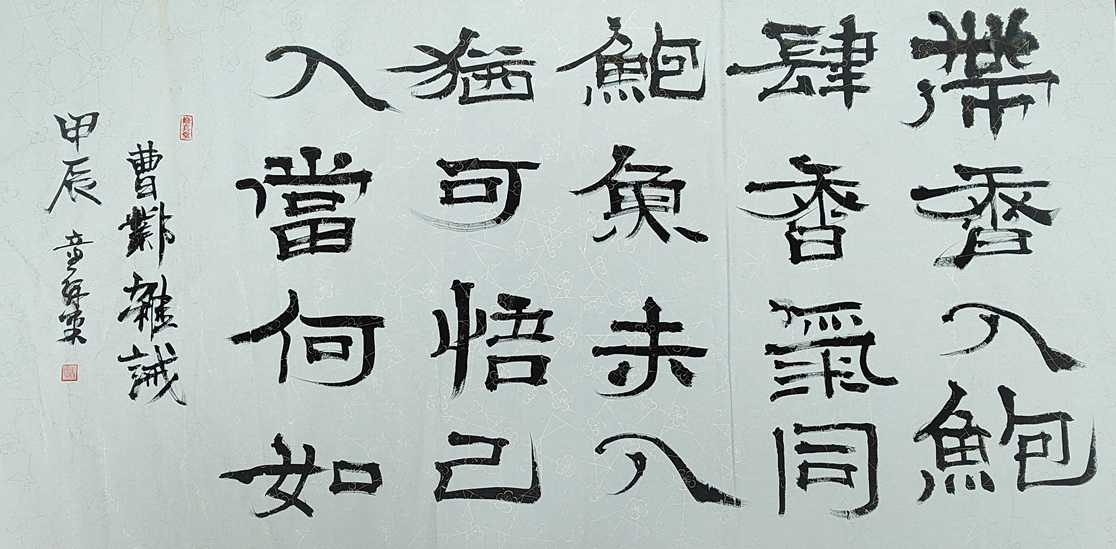 帶香入鮑
肆香氣同
鮑魚未入
猶可悟己
入當何如
曹鄴雜誡
甲辰